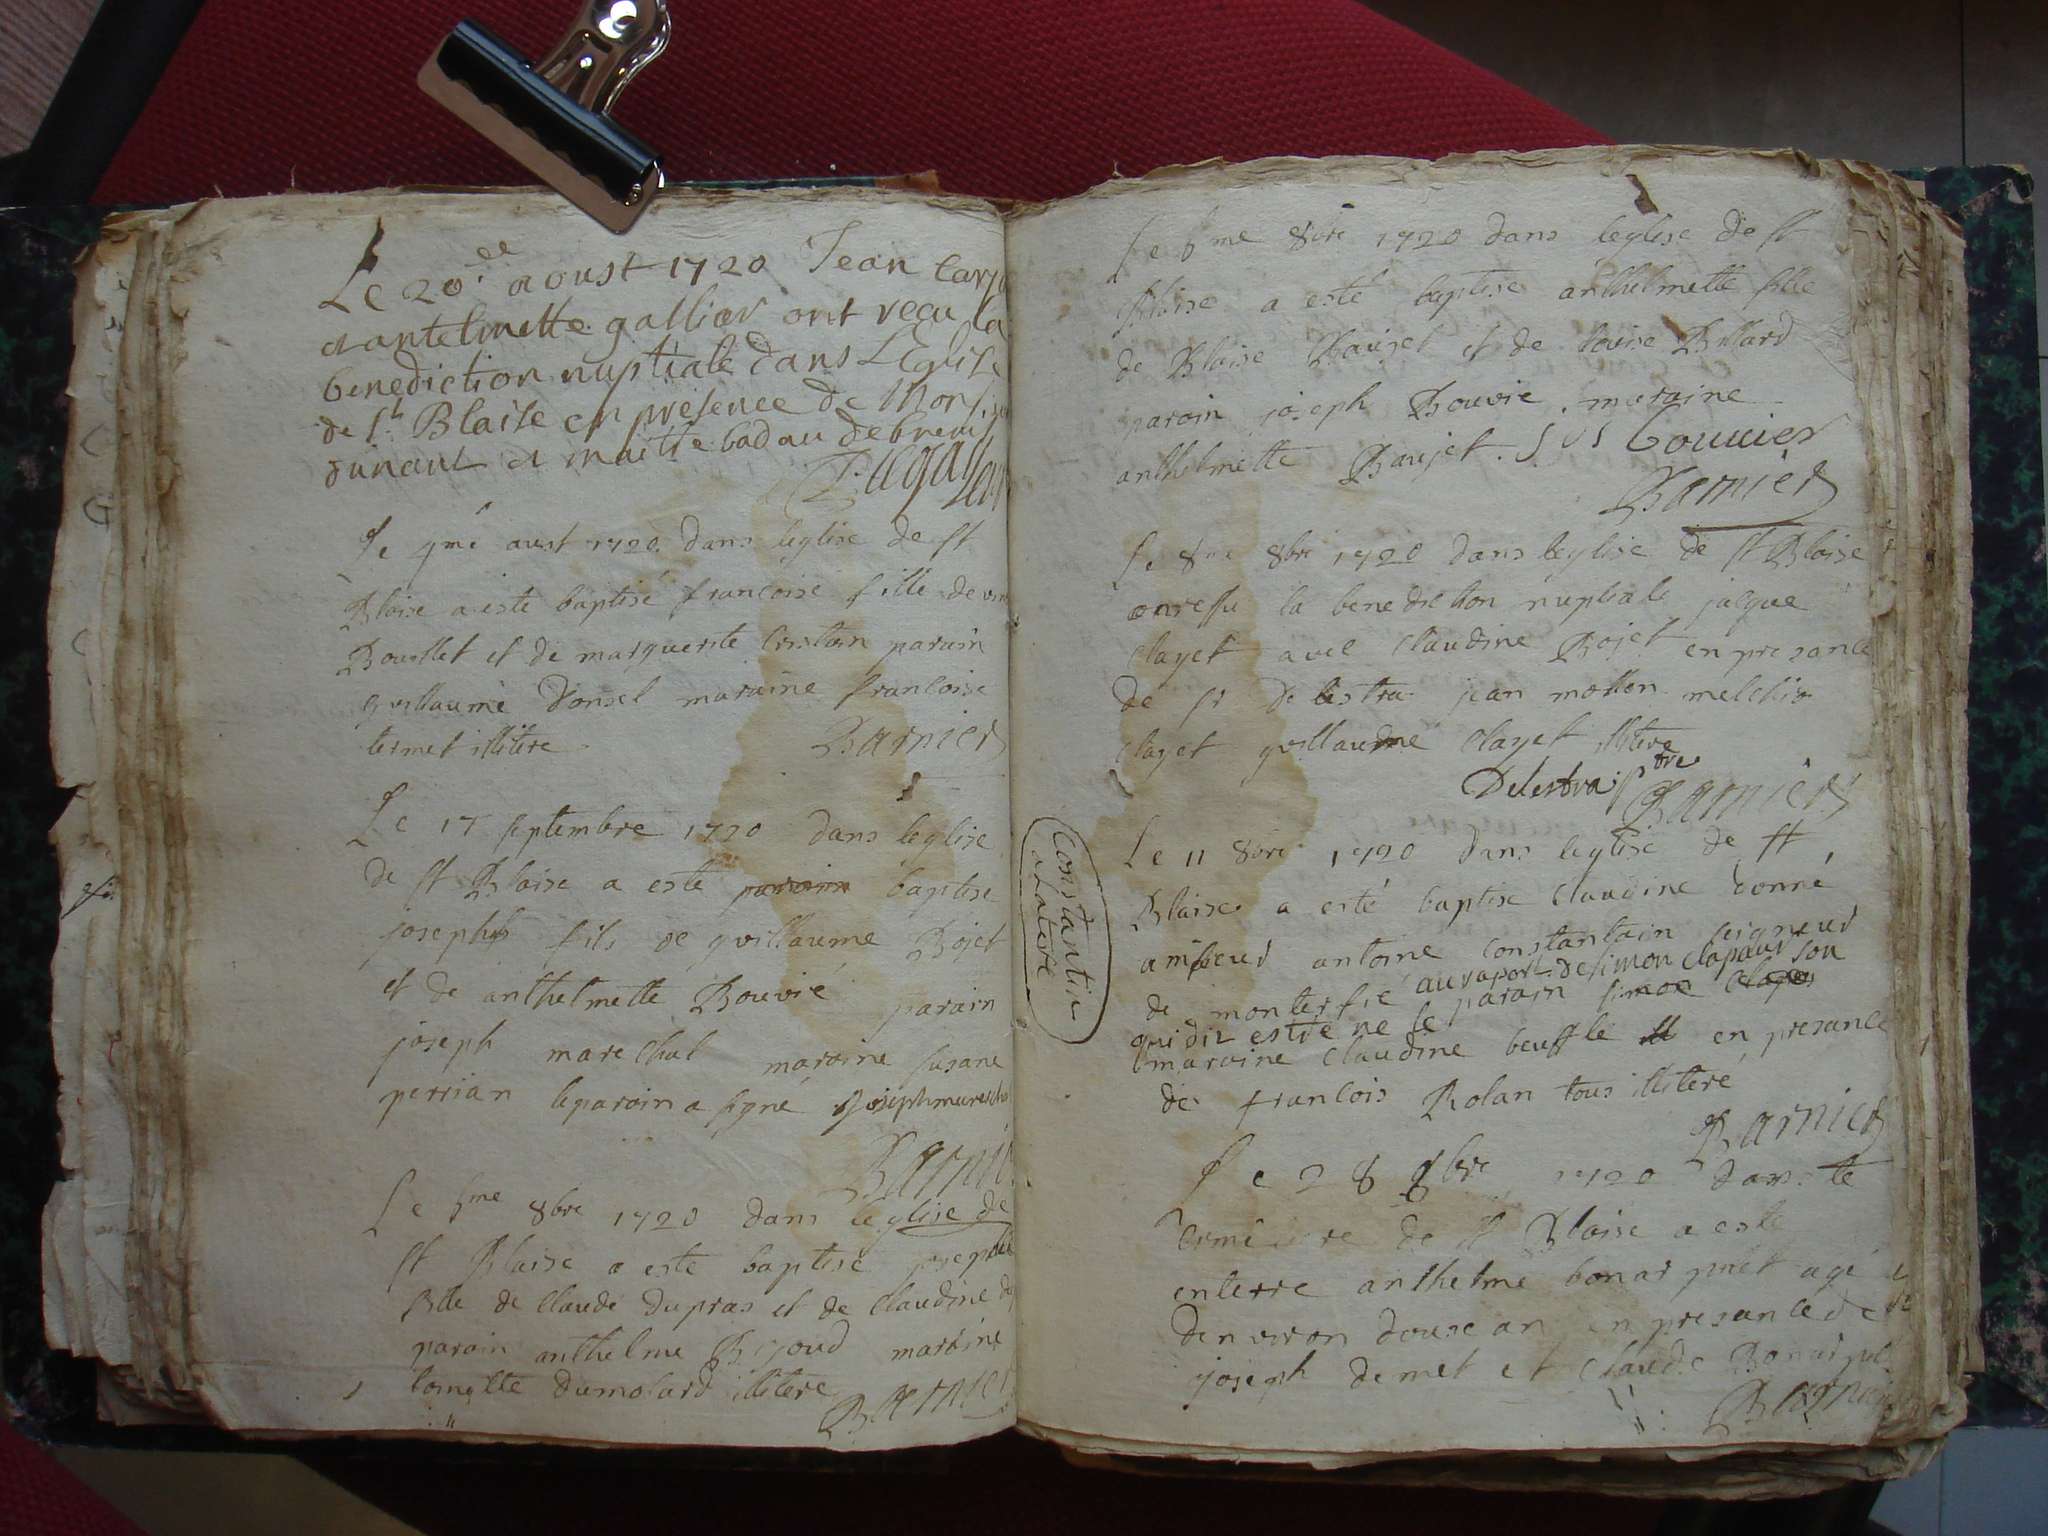 Le 20.de aoust 1720 Jean
antelmette gallier ont recu la
benediction nuptiale dans L'Eglise
de St Blaise en presence de
et maitre
Le 4me aust 1720 dans leglise de st
Blaise a este baptisé francoise fille de
Bouillet et de marguerite parain
guillaume donsel maraine francoise
termet illitere
Barnier
Le 17 septembre 1720 dans leglise
de st Blaise a este baptise
joseph fils de guillaume Bojet
et de anthelmette Bouvié parain
joseph marechal maraine susane
perrian leparain a signé joseph marechal
Barnier
Le 6me 8bre 1720 dans leglise de
st Blaise a este baptisé
fille de claude dupras et de claudine
parain anthelme Bijoud maraine
dumolard illitere
Barnier
Le 6me 8bre 1720 dans leglise de st
Blaise a esté baptise anthelmette fille
de Blaise Baujet et de louise Billard
parain joseph Bouvie maraine
anthelmette Baujet. bouuier
Barnier
Le 8me 8bre 1720 dans leglise de st Blaise
la benediction nuptiale jaque
clayet avec claudine Bojet en presance
de sr Delestra jean motton melchio
clayet guillaume clayet illitere
Delestra ptre
Barnier
Constantin
Le 11 8bre 1720 dans leglise de st
Blaise a esté baptise claudine donné
antoine constantain seigneur
de au raport de simon clapaud son
qui dit estre ne le parain simon
maraine claudine en presance
de francois Rolan tous illiteré
Barnier
Le 28 1720 dans le
de st Blaise a este
enterre anthelme agé
denviron douse an en presance de
joseph demet et claude
Barnier